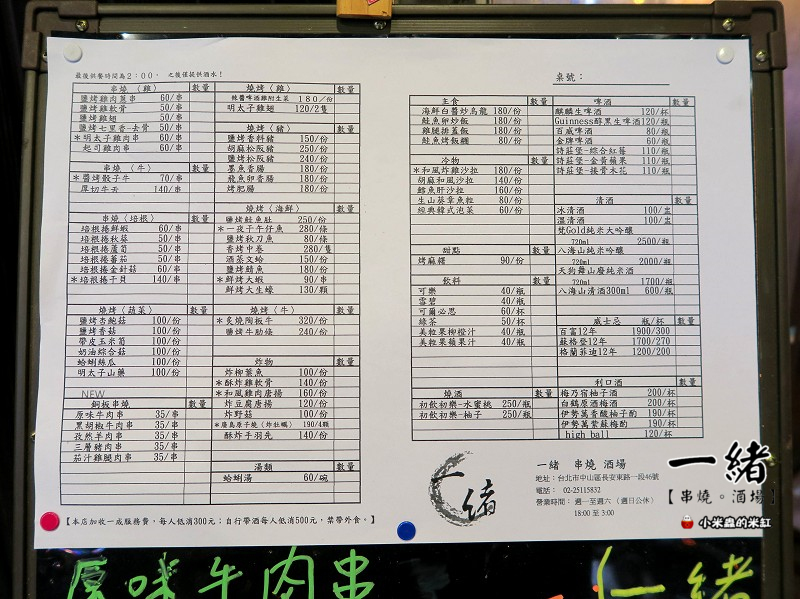 最後供餐時間為2：00， 之後僅提供酒水！
串燒（雞） 數量
鹽烤雞肉蔥串 60/串
鹽烤雞軟骨 50/串
鹽烤雞翅 50/串
鹽烤七里香-去骨 50/串
*明太子雞肉串 60/串
起司雞肉串 60/串
串燒（牛） 數量
*醬烤骰子牛 70/串
厚切牛舌 140/串
串燒（培根） 數量
培根捲鮮蝦 60/串
培根捲秋葵 50/串
培根捲蘆筍 50/串
培根捲蕃茄 50/串
培根捲金針菇 60/串
*培根捲干貝 140/串
燒烤（蔬菜） 數量
鹽烤杏鮑菇 100/份
鹽烤香菇 100/份
帶皮玉米筍 100/份
奶油綜合菇 100/份
蛤蜊絲瓜 100/份
明太子山藥 100/份
NEW
銅板串燒 數量
原味牛肉串 35/串
黑胡椒牛肉串 35/串
孜然羊肉串 35/串
三層豬肉串 35/串
茄汁雞腿肉串 35/串
燒烤（雞） 數量
辣醬啤酒雞附生菜 180/份
明太子雞翅 120/2隻
燒烤（豬） 數量
鹽烤香料豬 150/份
胡麻松阪豬 250/份
鹽烤松阪豬 240/份
墨魚香腸 180/份
飛魚卵香腸 180/份
烤肥腸 180/份
燒烤（海鮮） 數量
鹽烤鮭魚肚 250/份
*一夜干午仔魚 280/條
鹽烤秋刀魚 80/條
香烤中卷 280/隻
酒蒸文蛤 150/份
鹽烤鯖魚 180/份
*鮮烤大蝦 90/串
鮮烤大生蠔 130/顆
燒烤（牛） 數量
*炙燒陶板牛 320/份
鹽烤牛肋條 240/份
炸物 數量
炸柳葉魚 100/份
*酥炸雞軟骨 140/份
*和風雞肉唐揚 160/份
炸豆腐唐揚 120/份
炸野菇 100/份
*廣島原子燒（炸牡蠣） 190/4顆
酥炸手羽先 140/份
湯類 數量
蛤蜊湯 60/碗
【本店加收一成服務費，每人低消300元；自行帶酒每人低消500元，禁帶外食。】
桌號：
主食 數量
海鮮白醬炒烏龍 180/份
鮭魚卵炒飯 180/份
雞腿排蓋飯 180/份
鮭魚烤飯糰 80/份
冷物 數量
*和風炸雞沙拉 180/份
胡麻和風沙拉 140/份
鱈魚肝沙拉 160/份
生山葵章魚粒 80/份
經典韓式泡菜 60/份
甜點 數量
烤麻糬 90/份
飲料 數量
可樂 40/瓶
雪碧 40/瓶
可爾必思 60/杯
綠茶 50/杯
美粒果柳橙汁 40/瓶
美粒果蘋果汁 40/瓶
燒酒 數量
初飲初樂-水蜜桃 250/瓶
初飲初樂-柚子 250/瓶
啤酒 數量
麒麟生啤酒 120/杯
Guinness醇黑生啤酒 120/瓶
百威啤酒 80/瓶
金牌啤酒 60/瓶
詩莊堡-綜合紅莓 110/瓶
詩莊堡-金黃蘋果 110/瓶
詩莊堡-接骨木花 110/瓶
清酒 數量
冰清酒 100/盅
溫清酒 100/盅
梵Gold純米大吟釀
720ml 2500/瓶
八海山純米吟釀
720ml 2000/瓶
天狗舞山廢純米酒
720ml 1700/瓶
八海山清酒300ml 600/瓶
威士忌 瓶/杯 數量
百富12年 1900/300
蘇格登12年 1700/270
格蘭菲迪12年 1200/200
利口酒 數量
梅乃宿柚子酒 200/杯
白鶴原酒梅酒 200/杯
伊勢萬青酸柚子酌 190/杯
伊勢萬紫蘇梅酌 190/杯
high ball 120/杯
一緒
一緒 串燒 酒場
地址：台北市中山區長安東路一段46號
電話： 02-25115832
營業時間： 週一至週六 （週日公休）
18:00 至 3:00
一緒
【串燒。酒場】
小米蟲的米缸
厚咪牛肉串
一緒